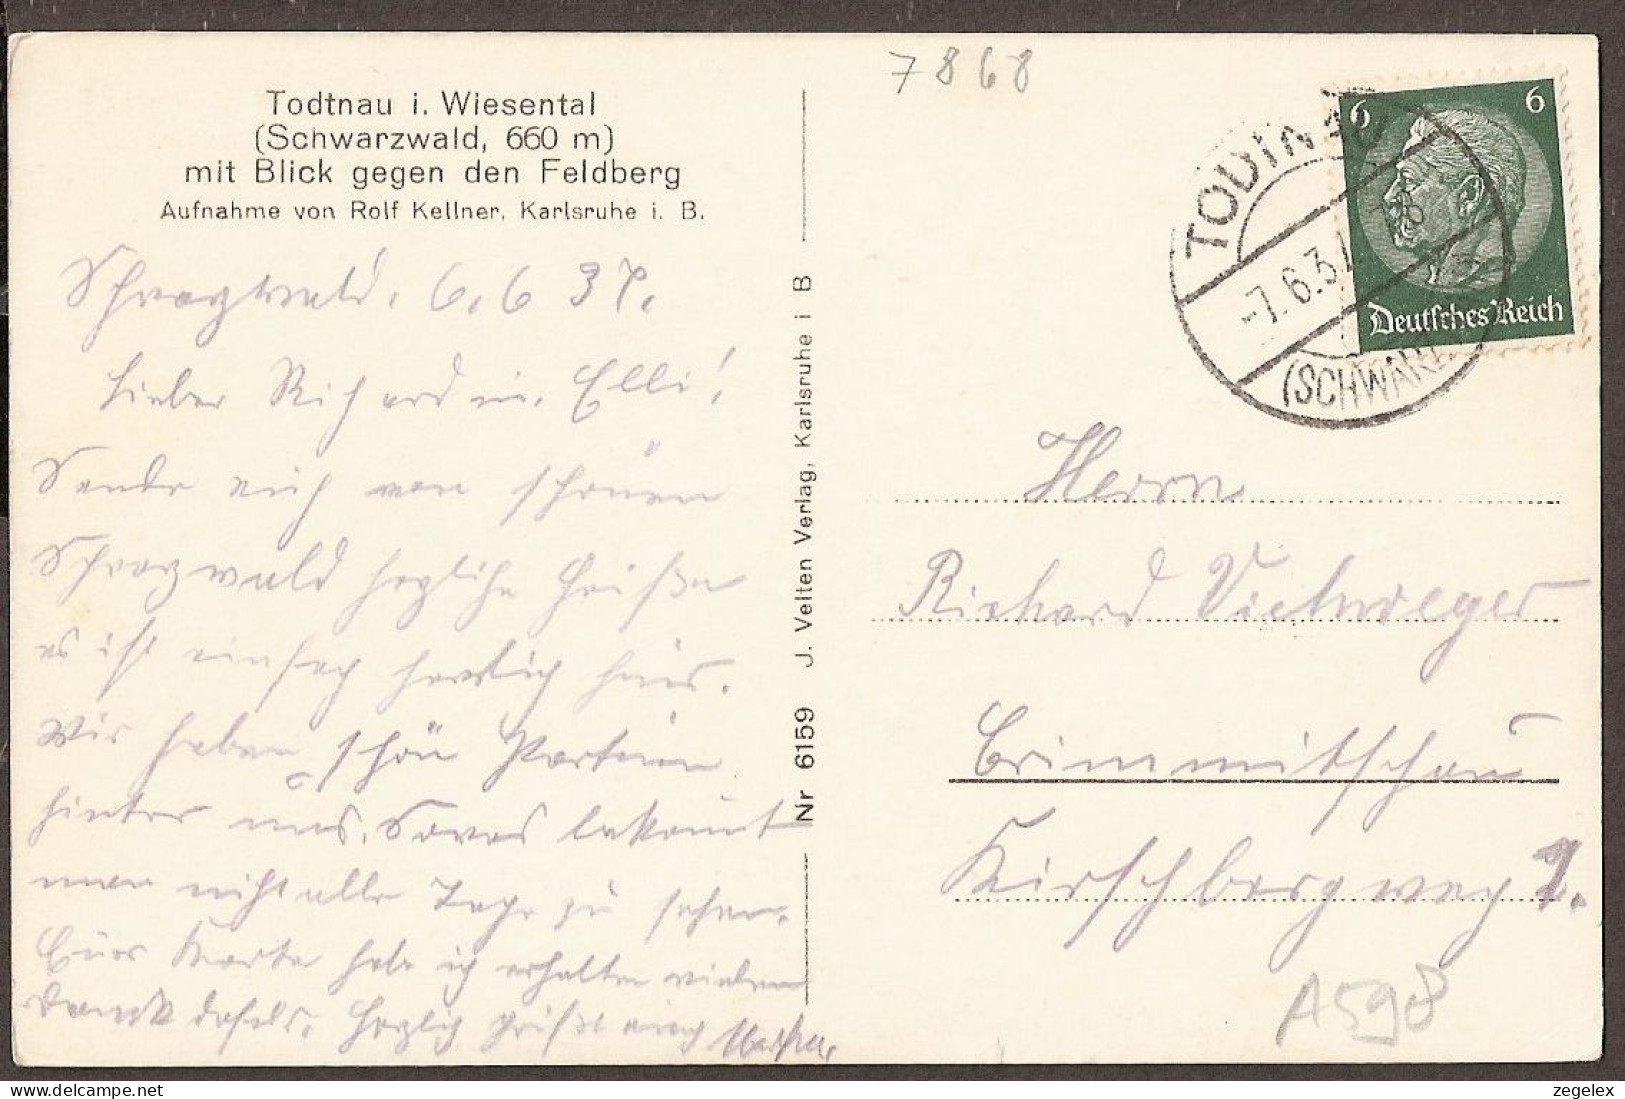 Todtnau i. Wiesental
(Schwarzwald, 660 m)
mit Blick gegen den Feldberg
Aufnahme von Rolf Kellner, Karlsruhe i. B.
Schwarzwald. 6.6 37.
Lieber Richard u. Elli!
Sende euch vom schönen
Schwarzwald herzliche Grüße
es ist einfach herrlich hier.
Wir haben schön Partien
hinter uns. Sowas bekommt
man nicht alle Tage zu sehen.
Eure Karte habe ich erhalten vielen
Dank dafür. Herzlich grüßt euch
Nr 6159 J. Velten Verlag, Karlsruhe i B
7868
6 6
Deutsches Reich
TODTNAU
-7.6.37
(SCHWARZ
Herrn
Richard Vietweger
Crimmitschau
Kirschbergweg 1.
A598
zegelex